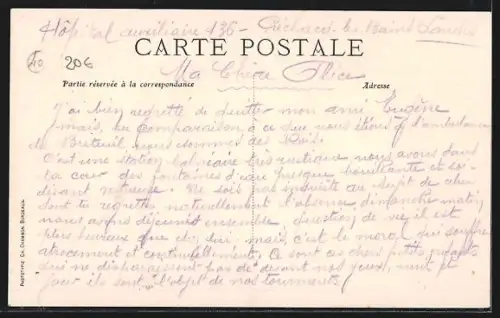 Hôpital auxiliaire 136 - les Bains Landes
CARTE POSTALE
40
206
Ma Chère Alice
Partie réservée à la correspondance
Adresse
J'ai bien regretté de quitter mon ami Eugène
mais, en comparaison à ce que nous étions à l'ambulance
de Breteuil, nous sommes des Rois.
C'est une station balnéaire très rustique nous avons dans
la cour des fontaines d'eau presque bouillante et soi-
disant Ne sois pas inquiète au sujet de celui
dont tu regrettes naturellement l'absence, dimanche matin,
nous avons déjeuné ensemble, de vie, il est
plus heureux que mais, c'est le moral qui souffre
atrocement et Ce sont ces chers petits enfants
qui ne disparaissent pas de devant nos yeux, nuit et
jour ils sont l'objet de nos tourments
PHOTOTYPIE CH. CHAMBON, BORDEAUX